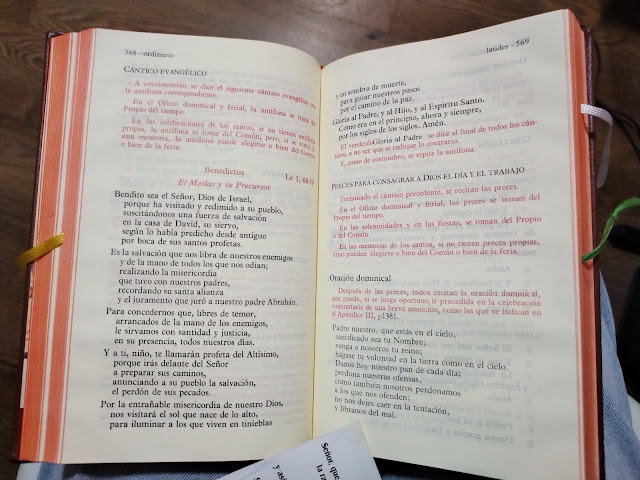 568 - ordinario
CÁNTICO EVANGÉLICO
A continuación se dice el siguiente cántico evangélico con
la antífona correspondiente.
En el Oficio dominical y ferial, la antífona se toma del
Propio del tiempo.
En las celebraciones de los santos, si no tienen antífona
propia, la antífona se toma del Común; pero, si se trata de
una memoria, la antífona puede elegirse o bien del Común
o bien de la feria.
Benedictus Lc 1, 68-79
El Mesías y su Precursor
Bendito sea el Señor, Dios de Israel,
porque ha visitado y redimido a su pueblo,
suscitándonos una fuerza de salvación
en la casa de David, su siervo,
según lo había predicho desde antiguo
por boca de sus santos profetas.
Es la salvación que nos libra de nuestros enemigos
y de la mano de todos los que nos odian;
realizando la misericordia
que tuvo con nuestros padres,
recordando su santa alianza
y el juramento que juró a nuestro padre Abrahán.
Para concedernos que, libres de temor,
arrancados de la mano de los enemigos,
le sirvamos con santidad y justicia,
en su presencia, todos nuestros días.
Y a ti, niño, te llamarán profeta del Altísimo,
porque irás delante del Señor
a preparar sus caminos,
anunciando a su pueblo la salvación,
el perdón de sus pecados.
Por la entrañable misericordia de nuestro Dios,
nos visitará el sol que nace de lo alto,
para iluminar a los que viven en tinieblas
laudes - 569
y en sombra de muerte,
para guiar nuestros pasos
por el camino de la paz.
Gloria al Padre, y al Hijo, y al Espíritu Santo.
Como era en el principio, ahora y siempre,
por los siglos de los siglos. Amén.
El versículo Gloria al Padre se dice al final de todos los cán-
ticos, a no ser que se indique lo contrario.
Y, como de costumbre, se repite la antífona.
PRECES PARA CONSAGRAR A DIOS EL DÍA Y EL TRABAJO
Terminado el cántico precedente, se recitan las preces.
En el Oficio dominical y ferial, las preces se toman del
Propio del tiempo.
En las solemnidades y en las fiestas, se toman del Propio
o del Común.
En las memorias de los santos, si no tienen preces propias,
éstas pueden elegirse o bien del Común o bien de la feria.
Oración dominical
Después de las preces, todos recitan la oración dominical,
que puede, si se juzga oportuno, ir precedida en la celebración
comunitaria de una breve monición, como las que se indican en
el Apéndice III, p1381.
Padre nuestro, que estás en el cielo,
santificado sea tu Nombre;
venga a nosotros tu reino;
hágase tu voluntad en la tierra como en el cielo.
Danos hoy nuestro pan de cada día;
perdona nuestras ofensas,
como también nosotros perdonamos
a los que nos ofenden;
no nos dejes caer en la tentación,
y líbranos del mal.
Señor, que
la
y